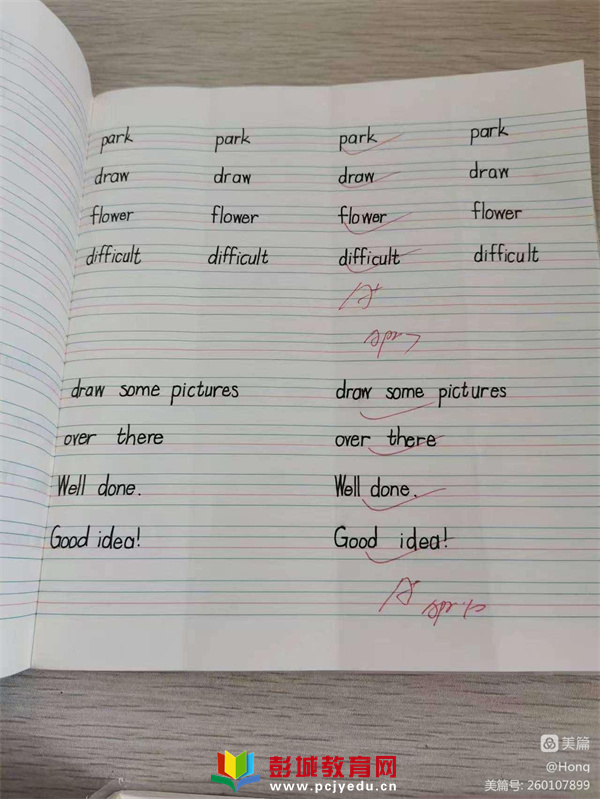 park park park park
draw draw draw draw
flower flower flower flower
difficult difficult difficult difficult
A+
draw some pictures draw some pictures
over there over there
Well done. Well done.
Good idea! Good idea!
A+
美篇
@Hong
彭城教育网
www.pcjyedu.cn
美篇号: 260107899